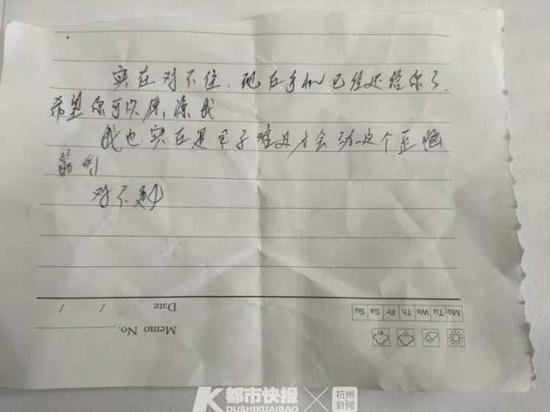 实在对不住.现在手机已经还给你了.
希望你可以原谅我
我也实在是日子难过才会动这个歪脑
筋的
对不起
Date / /
Memo No.
Mo Tu We Th Fr Sa Su
都市快报
DUSHIKUAIBAO
杭州
新闻